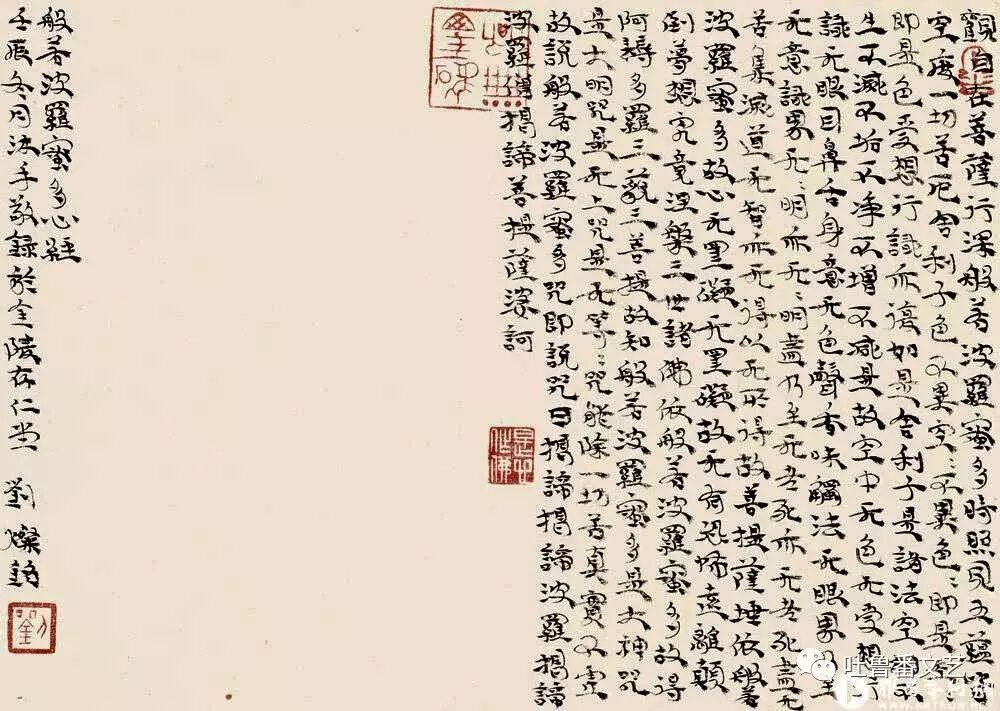 觀自在菩薩行深般若波羅蜜多時照見五蘊皆
空度一切苦厄舍利子色不異空:不異色:即是空:
即是色受想行識亦復如是舍利子是諸法空相不
生不滅不垢不净不增不減是故空中无色无受想行
識无眼耳鼻舌身意无色聲香味觸法无眼界乃至
无意識界无:明亦无:明盡乃至无老死亦无老死盡无
苦集滅道无智亦无得以无所得故菩提薩埵依般若
波羅蜜多故心无罣礙无罣礙故无有恐怖遠離顛
倒夢想究竟涅槃三世諸佛依般若波羅蜜多故得
阿耨多羅三藐三菩提故知般若波羅蜜多是大神咒
是大明咒是无上咒是无等:咒能除一切苦真實不虛
故說般若波羅蜜多咒即說咒曰揭諦揭諦波羅揭諦
波羅僧揭諦菩提薩婆訶
般若波羅蜜多心經
壬辰冬月沐手敬録於金陵存仁堂 劉燦銘
劉
吐鲁番文艺